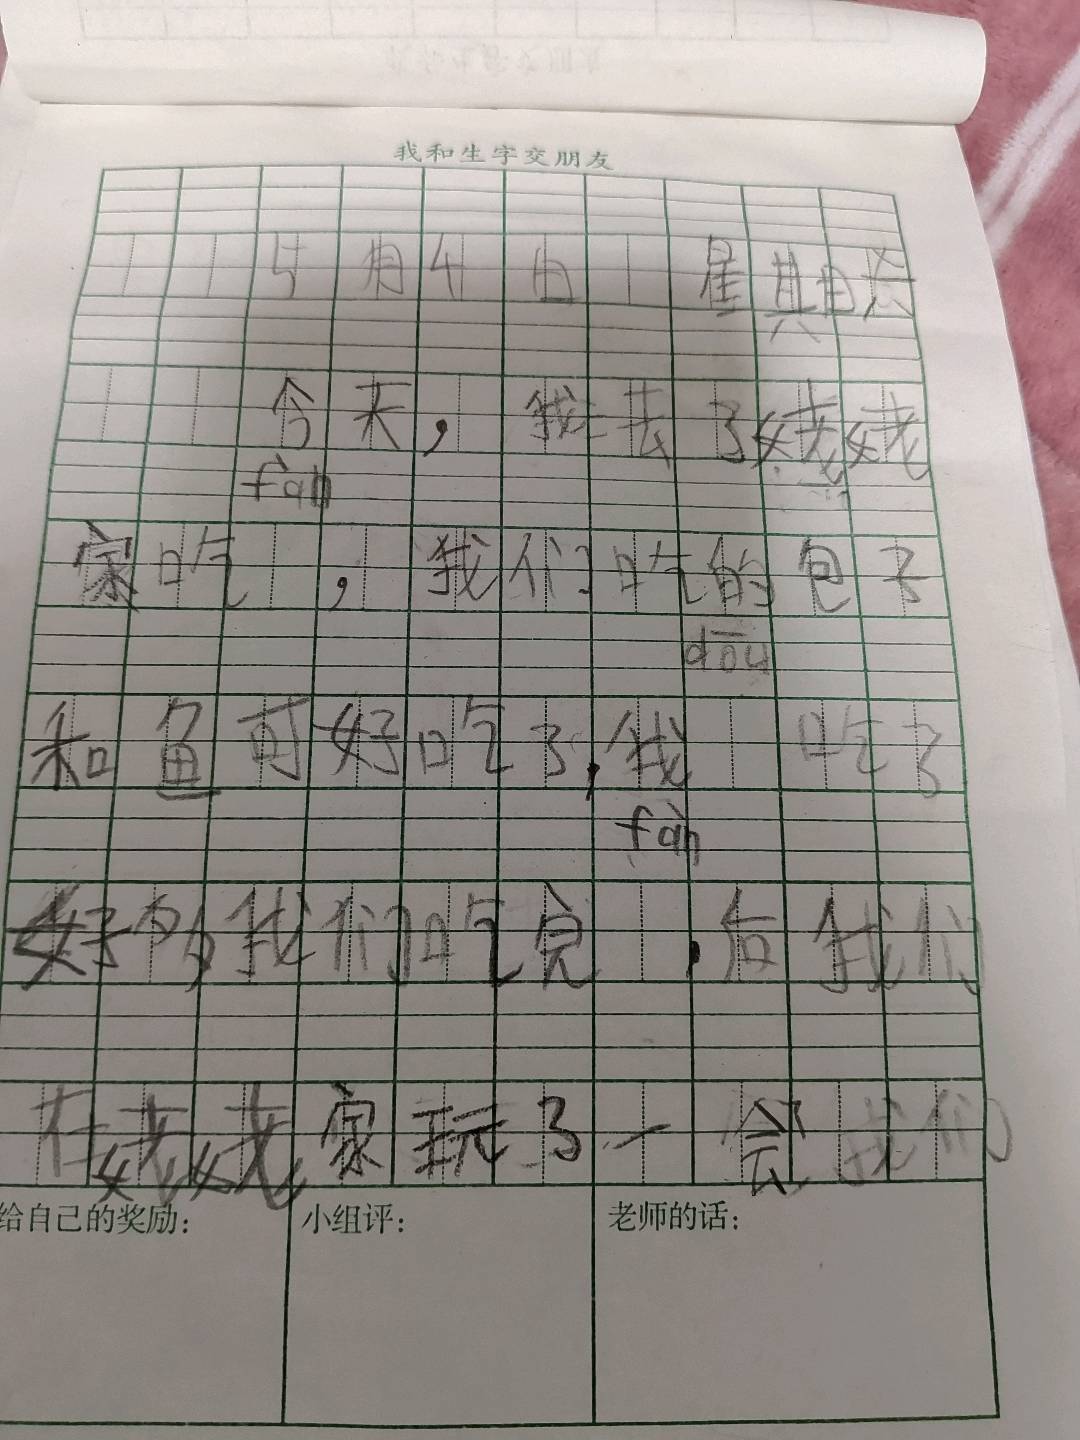 我和生字交朋友
5月4日 星其日天
今天，我去了姥姥
fàn
家吃 ，我们吃的包子
dōu
和鱼可好吃了，我 吃了
fàn
好多我们吃完 ，后我们
在姥姥家玩了一会我们
给自己的奖励： 小组评： 老师的话：